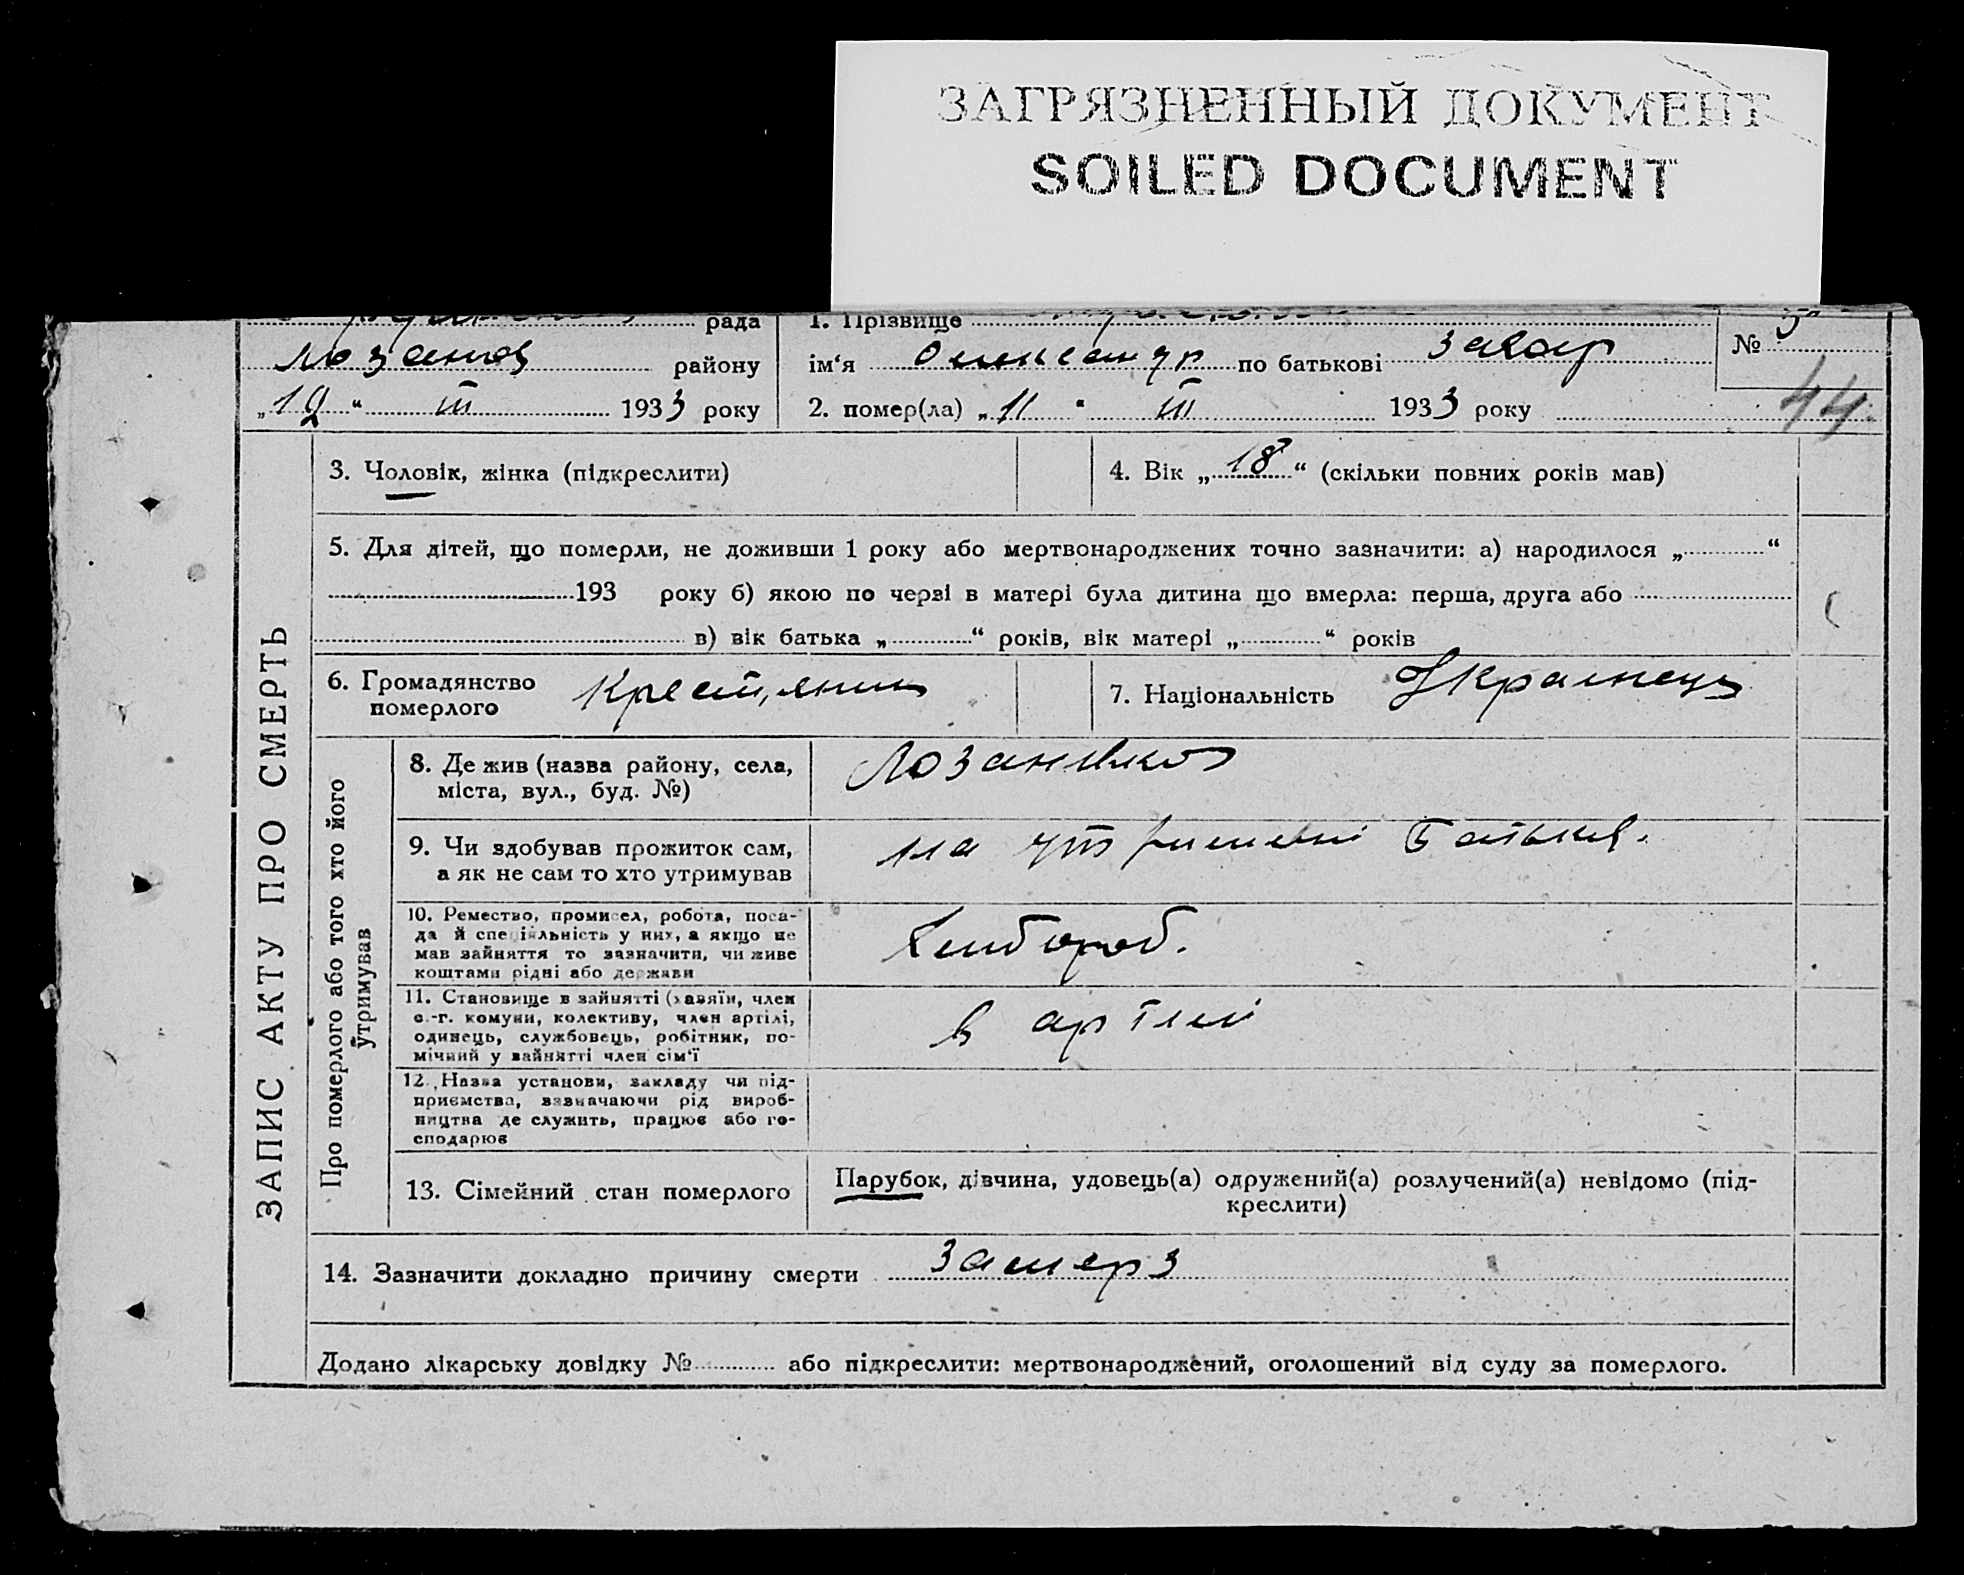 ЗАГРЯЗНЕННЫЙ ДОКУМЕНТ
SOILED DOCUMENT
рада
1. Прізвище
№ 5
району
ім‘я Олександр по батькові Захар
44
„12“ III 1933 року
2. помер(ла) „11“ III 1933 року
ЗАПИС АКТУ ПРО СМЕРТЬ
3. Чоловік, жінка (підкреслити)
4. Вік „18“ (скільки повних років мав)
5. Для дітей, що померли, не доживши 1 року або мертвонароджених точно зазначити: а) народилося „ “
193 року б) якою по черзі в матері була дитина що вмерла: перша, друга або
в) вік батька „ “ років, вік матері „ “ років
6. Громадянство
померлого
7. Національність Украинець
Про померлого або того хто його
утримував
8. Де жив (назва району, села,
міста, вул., буд. №)
Лозанівка
9. Чи здобував прожиток сам,
а як не сам то хто утримував
на утриманні батьків.
10. Ремество, промисел, робота, поса-
да й спеціяльність у них, а якщо не
мав зайняття то зазначити, чи живе
коштами рідні або держави
Хлібороб.
11. Становище в зайнятті (хазяїн, член
с.-г. комуни, колективу, член артілі,
одинець, службовець, робітник, по-
мічний у зайнятті член сім‘ї
в артілі
12. Назва установи, закладу чи під-
приємства, зазначаючи рід вироб-
ництва де служить, працює або го-
сподарює
13. Сімейний стан померлого
Парубок, дівчина, удовець(а) одружений(а) розлучений(а) невідомо (під-
креслити)
14. Зазначити докладно причину смерти замерз
Додано лікарську довідку № або підкреслити: мертвонароджений, оголошений від суду за померлого.